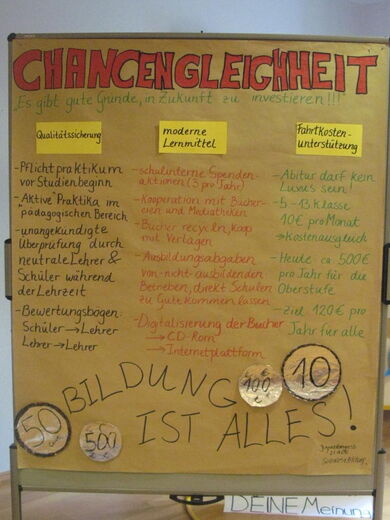 CHANCENGLEICHHEIT
"Es gibt gute Gründe, in Zukunft zu investieren!!!
Qualitätssicherung
- Pflichtpraktikum
vor Studienbeginn
- "Aktive" Praktika im
pädagogischen Bereich
- unangekündigte
Überprüfung durch
neutrale Lehrer &
Schüler während
der Lehrzeit
- Bewertungsbögen:
Schüler → Lehrer
Lehrer → Lehrer
moderne
Lernmittel
- schulinterne Spenden-
aktionen (3 pro Jahr)
- Kooperation mit Bücher-
eien und Mediatheken
- Bücher recyceln, Koop.
mit Verlagen
- Ausbildungsabgaben
von nicht-ausbildenden
Betrieben, direkt Schulen
zu Gute kommen lassen
- Digitalisierung der Bücher
→ CD-Rom
→ Internetplattform
Fahrtkosten-
unterstützung
- Abitur darf kein
Luxus sein!
- 5-13 Klasse
10€ pro Monat
→ Kostenausgleich
- Heute ca. 500€
pro Jahr für die
Oberstufe
- Ziel 120€ pro
Jahr für alle
BILDUNG
IST ALLES!
50
500
100
10
DEINE Meinung